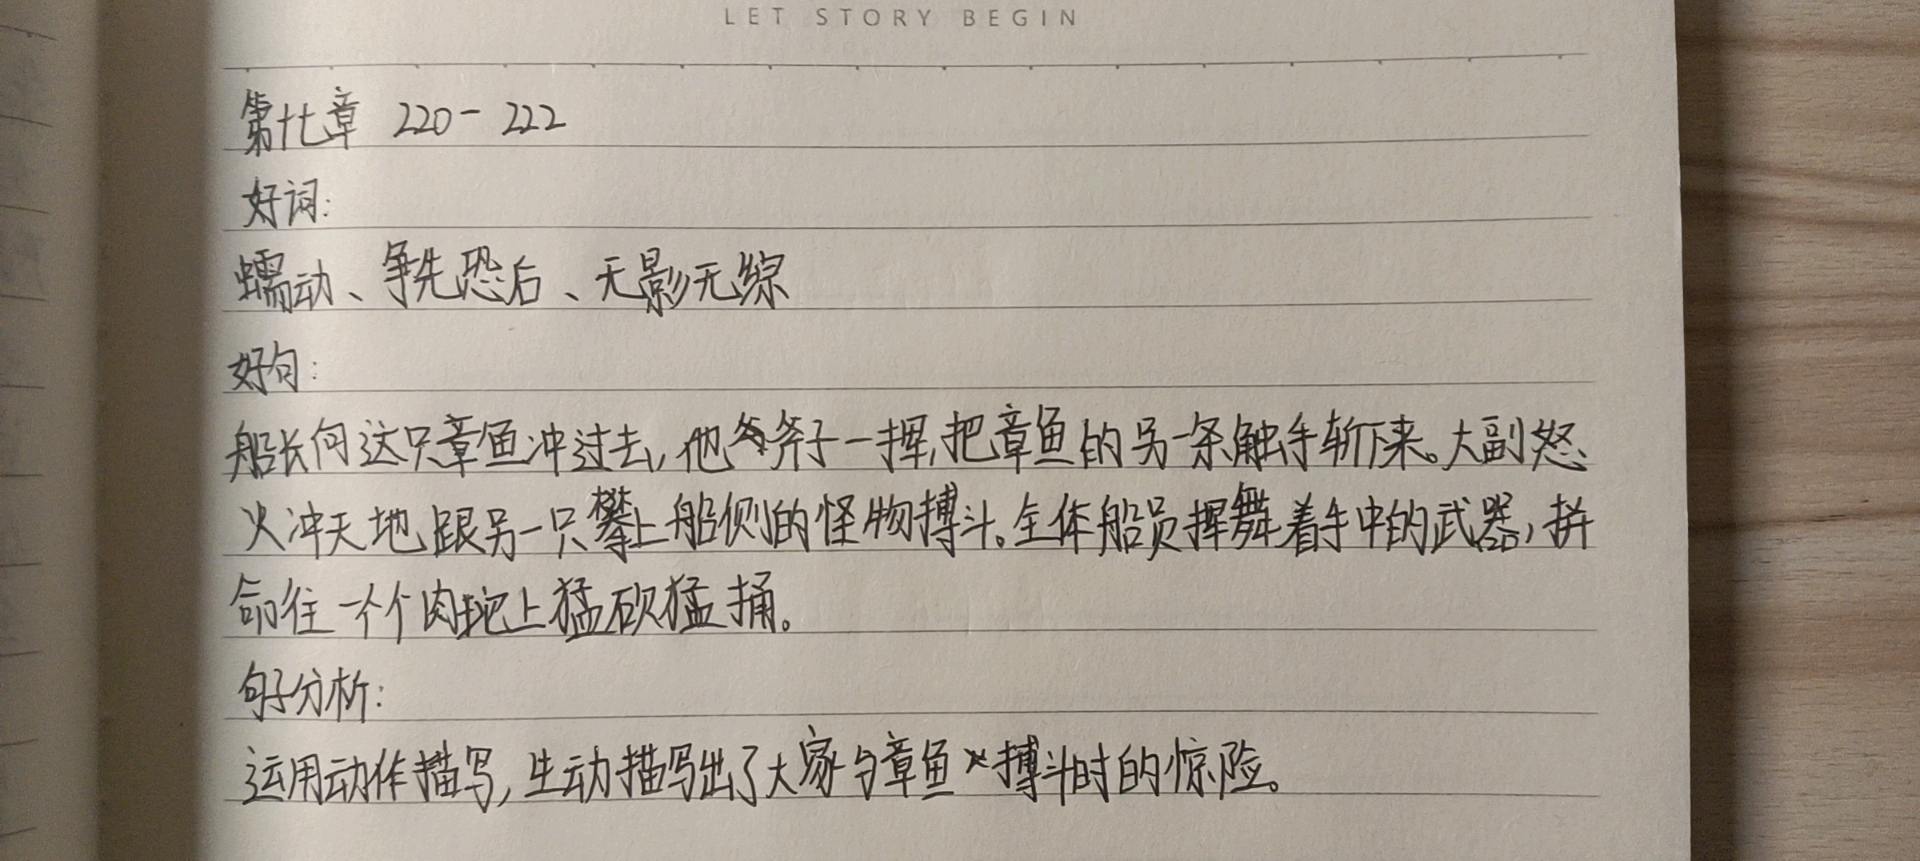 LET STORY BEGIN
第十七章 220-222
好词:
蠕动、争先恐后、无影无综
好句:
船长向这只章鱼冲过去,他斧子一挥,把章鱼的另一条触手斩下来。大副怒
火冲天地跟另一只攀上船侧的怪物搏斗。全体船员挥舞着手中的武器,拼
命往一个个肉堆上猛砍猛捅。
句子分析:
运用动作描写,生动描写出了大家与章鱼搏斗时的惊险。